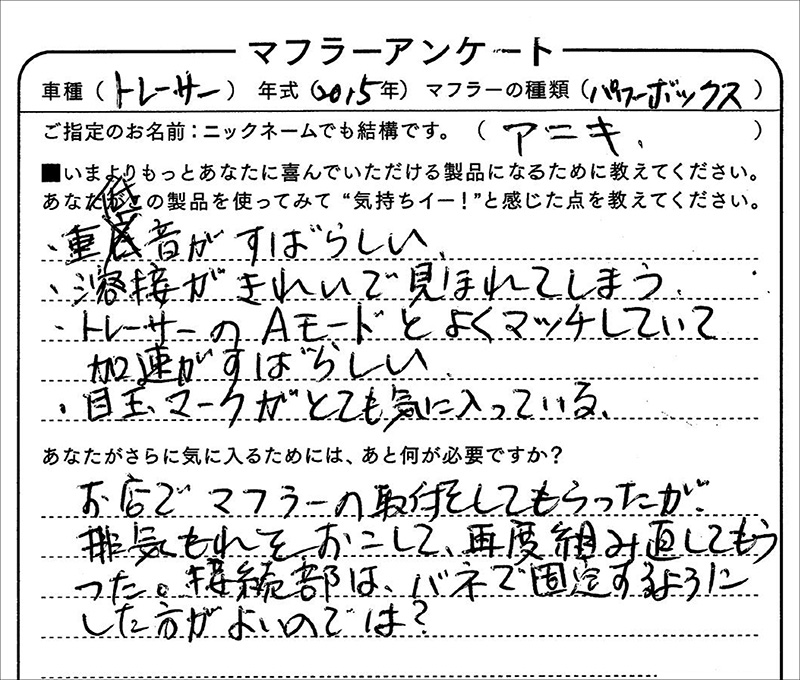 マフラーアンケート
車種（トレーサー） 年式（2015年） マフラーの種類（パワーボックス）
ご指定のお名前：ニックネームでも結構です。（アニキ.）
■いまよりもっとあなたに喜んでいただける製品になるために教えてください。
あなたがこの製品を使ってみて“気持ちイー！”と感じた点を教えてください。
・重低音がすばらしい.
・溶接がきれいで見ほれてしまう.
・トレーサーのAモードとよくマッチしていて
加速がすばらしい.
・目玉マークがとても気に入っている.
あなたがさらに気に入るためには、あと何が必要ですか？
お店でマフラーの取付をしてもらったが、
排気もれをおこして、再度組み直してもら
った。接続部は、バネで固定するように
した方がよいのでは？